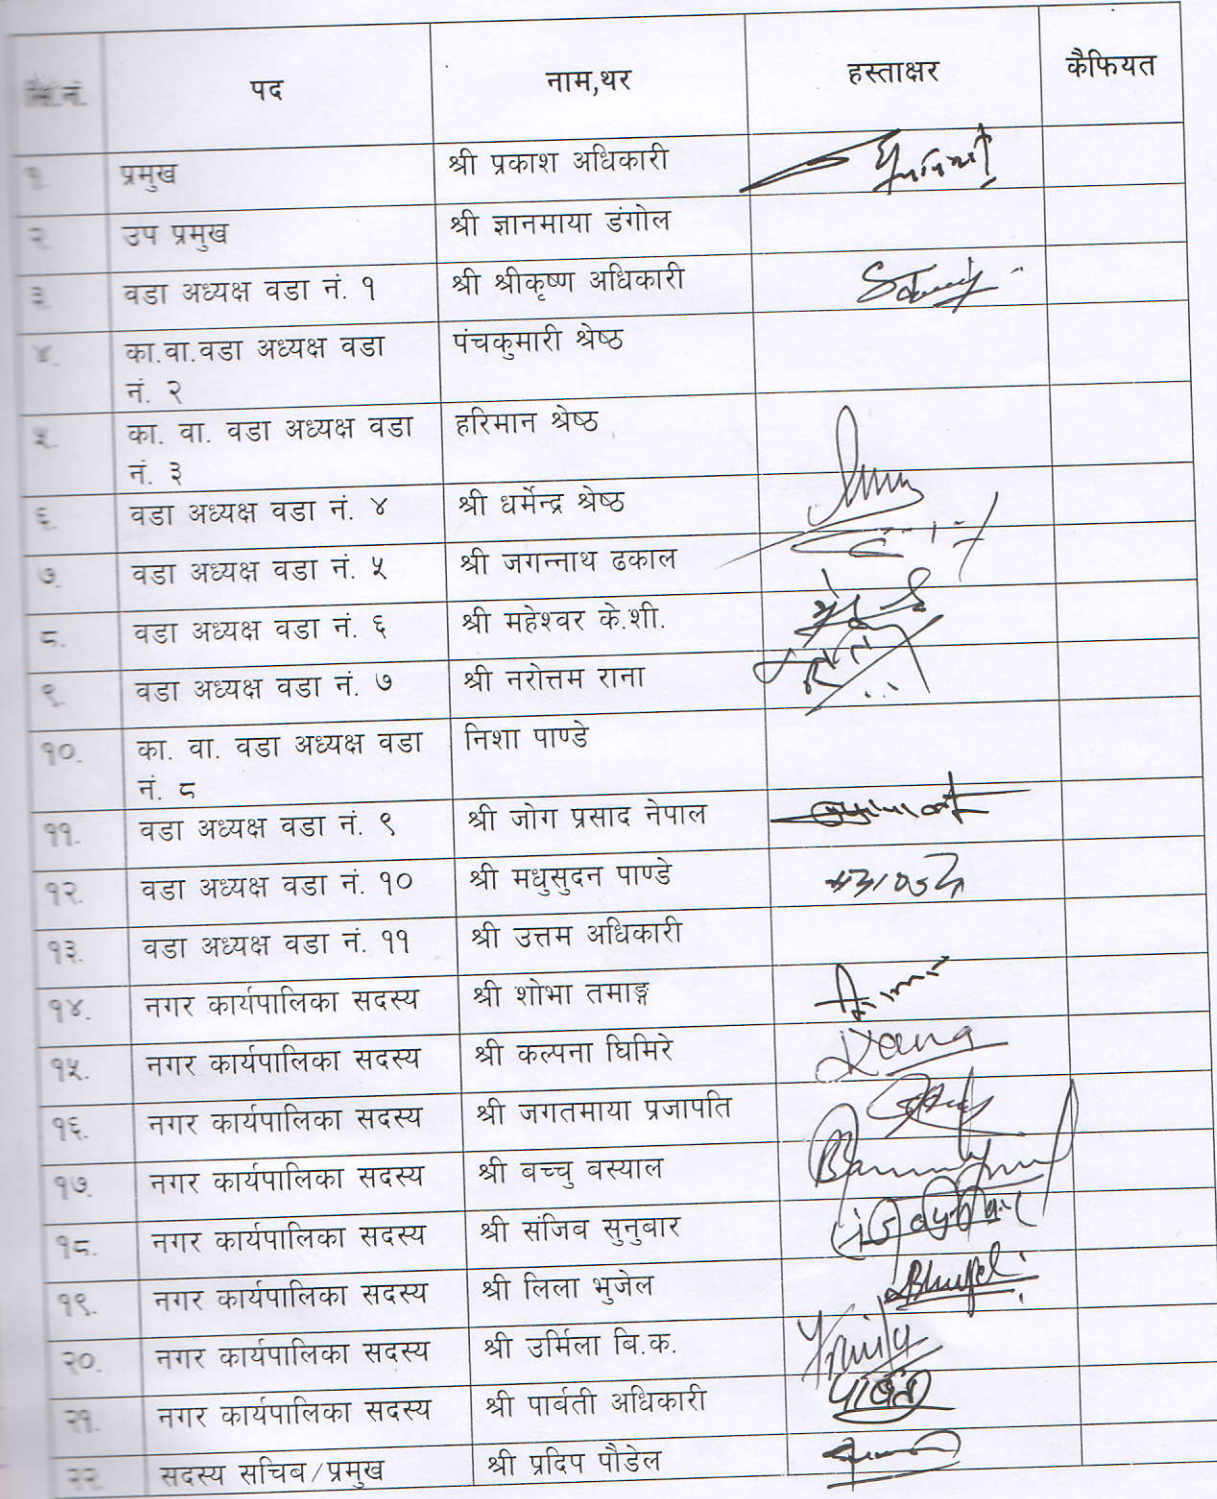 सि.नं. पद नाम,थर हस्ताक्षर कैफियत
१. प्रमुख श्री प्रकाश अधिकारी
२. उप प्रमुख श्री ज्ञानमाया डंगोल
३. वडा अध्यक्ष वडा नं. १ श्री श्रीकृष्ण अधिकारी
४. का.वा.वडा अध्यक्ष वडा पंचकुमारी श्रेष्ठ
नं. २
५. का. वा. वडा अध्यक्ष वडा हरिमान श्रेष्ठ
नं. ३
६. वडा अध्यक्ष वडा नं. ४ श्री धर्मेन्द्र श्रेष्ठ
७. वडा अध्यक्ष वडा नं. ५ श्री जगन्नाथ ढकाल
८. वडा अध्यक्ष वडा नं. ६ श्री महेश्वर के.शी.
९. वडा अध्यक्ष वडा नं. ७ श्री नरोत्तम राना
१०. का. वा. वडा अध्यक्ष वडा निशा पाण्डे
नं. ८
११. वडा अध्यक्ष वडा नं. ९ श्री जोग प्रसाद नेपाल
१२. वडा अध्यक्ष वडा नं. १० श्री मधुसुदन पाण्डे
१३. वडा अध्यक्ष वडा नं. ११ श्री उत्तम अधिकारी
१४. नगर कार्यपालिका सदस्य श्री शोभा तमाङ्ग
१५. नगर कार्यपालिका सदस्य श्री कल्पना घिमिरे
१६. नगर कार्यपालिका सदस्य श्री जगतमाया प्रजापति
१७. नगर कार्यपालिका सदस्य श्री बच्चु वस्याल
१८. नगर कार्यपालिका सदस्य श्री संजिब सुनुबार
१९. नगर कार्यपालिका सदस्य श्री लिला भुजेल Bhujel
२०. नगर कार्यपालिका सदस्य श्री उर्मिला बि.क.
२१. नगर कार्यपालिका सदस्य श्री पार्बती अधिकारी पार्बती
२२. सदस्य सचिब/प्रमुख श्री प्रदिप पौडेल